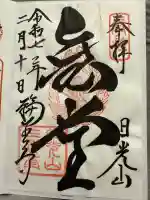 奉拝
日光山
堂
令和七年
二月十日
輪王寺